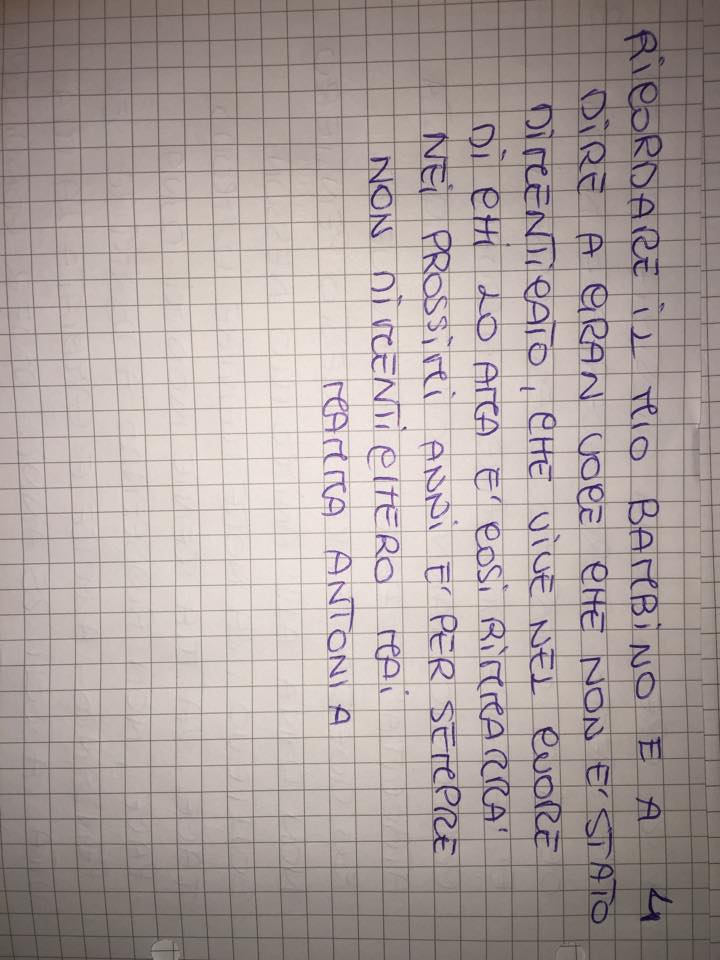 RICORDARE IL MIO BAMBINO E A 4
DIRE A GRAN VOCE CHE NON E' STATO
DIMENTICATO, CHE VIVE NEL CUORE
DI CHI LO AMA E' COSI RIMMARRA'
NEI PROSSIMI ANNI E' PER SEMPRE
NON DIMENTICHERO MAI
MAMMA ANTONIA